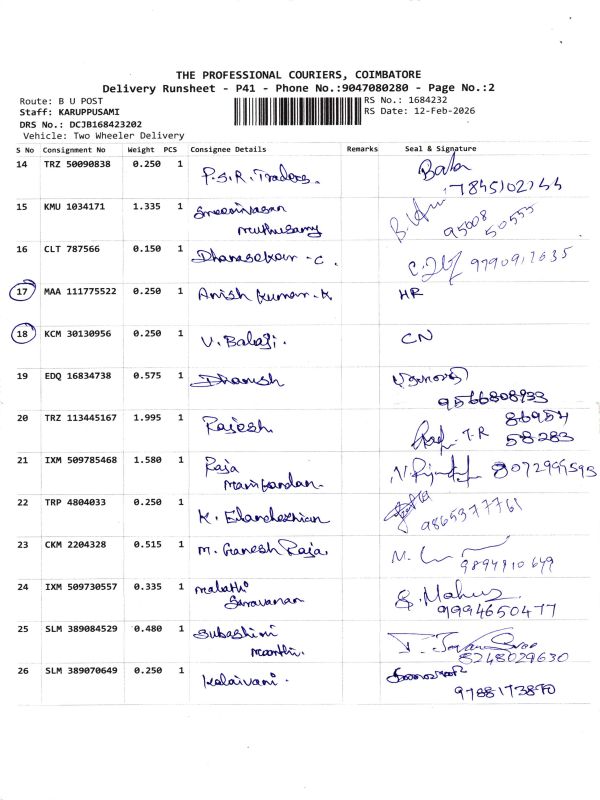 THE PROFESSIONAL COURIERS, COIMBATORE
Delivery Runsheet - P41 - Phone No.:9047080280 - Page No.:2
Route: B U POST
RS No.: 1684232
Staff: KARUPPUSAMI
RS Date: 12-Feb-2026
DRS No.: DCJB168423202
Vehicle: Two Wheeler Delivery
S No Consignment No Weight PCS Consignee Details Remarks Seal & Signature
14 TRZ 50090838 0.250 1 P.S.R. Traders. Bala
7845102244
15 KMU 1034171 1.335 1 Sreenivasan
muthusamy
95008
50555
16 CLT 787566 0.150 1 Dhanasekar - C. 9790912635
17 MAA 111775522 0.250 1 Anish kumar. K HR
18 KCM 30130956 0.250 1 V. Balaji. CN
19 EDQ 16834738 0.575 1 Dhanush
9566808933
20 TRZ 113445167 1.995 1 Rajesh T.R
86954
58283
21 IXM 509785468 1.580 1 Raja
Manikandan. 8072995595
22 TRP 4804033 0.250 1 K. Elanchezhian
9865377761
23 CKM 2204328 0.515 1 M. Ganesh Raja.
9894910649
24 IXM 509730557 0.335 1 malathi
Saravanan
9994650477
25 SLM 389084529 0.480 1 Subashini
moorthi.
8248029630
26 SLM 389070649 0.250 1 Kalaivani.
9788173870